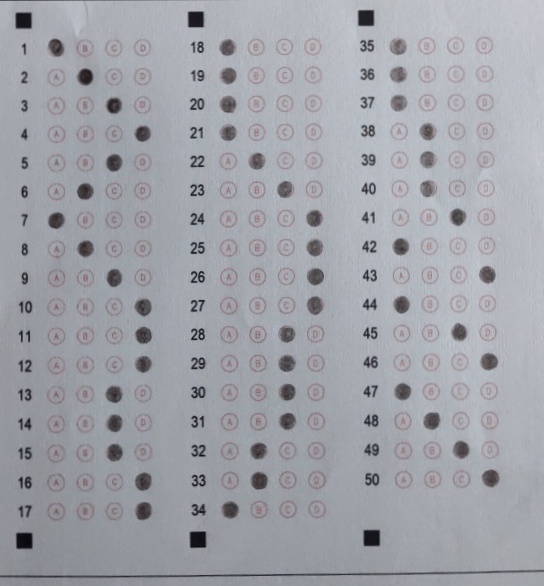 1 B C D
2 A C D
3 A B D
4 A B C
5 A B D
6 A C D
7 B C D
8 A C D
9 A B D
10 A B C
11 A B C
12 A B C
13 A B D
14 A B D
15 A B D
16 A B C
17 A B C
18 B C D
19 B C D
20 B C D
21 B C D
22 A C D
23 A B D
24 A B C
25 A B C
26 A B C
27 A B C
28 A B D
29 A B D
30 A B D
31 A B D
32 A C D
33 A C D
34 B C D
35 B C D
36 B C D
37 B C D
38 A C D
39 A C D
40 A C D
41 A B D
42 B C D
43 A B C
44 B C D
45 A B D
46 A B C
47 B C D
48 A C D
49 A B D
50 A B C